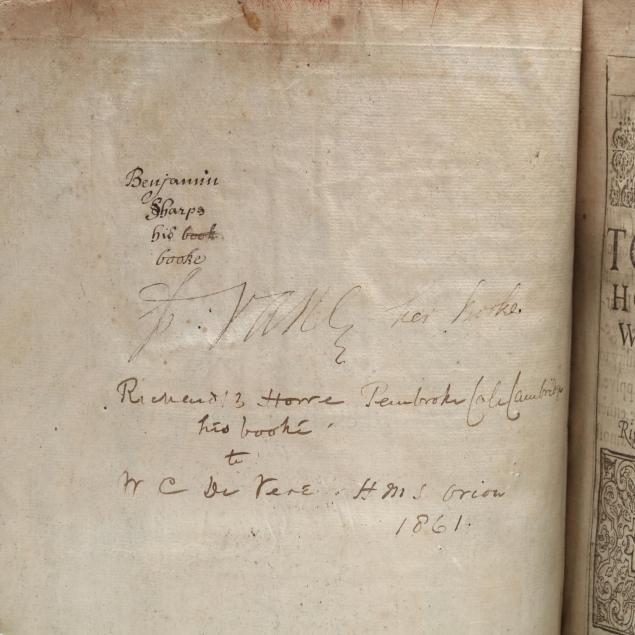 Benjamin
Sharps
his book
booke
her booke
Howe Pembroke Cole Cambridge
his booke
to
W C De Vere. HMS Orion
1861.
TO
H
W
Ri